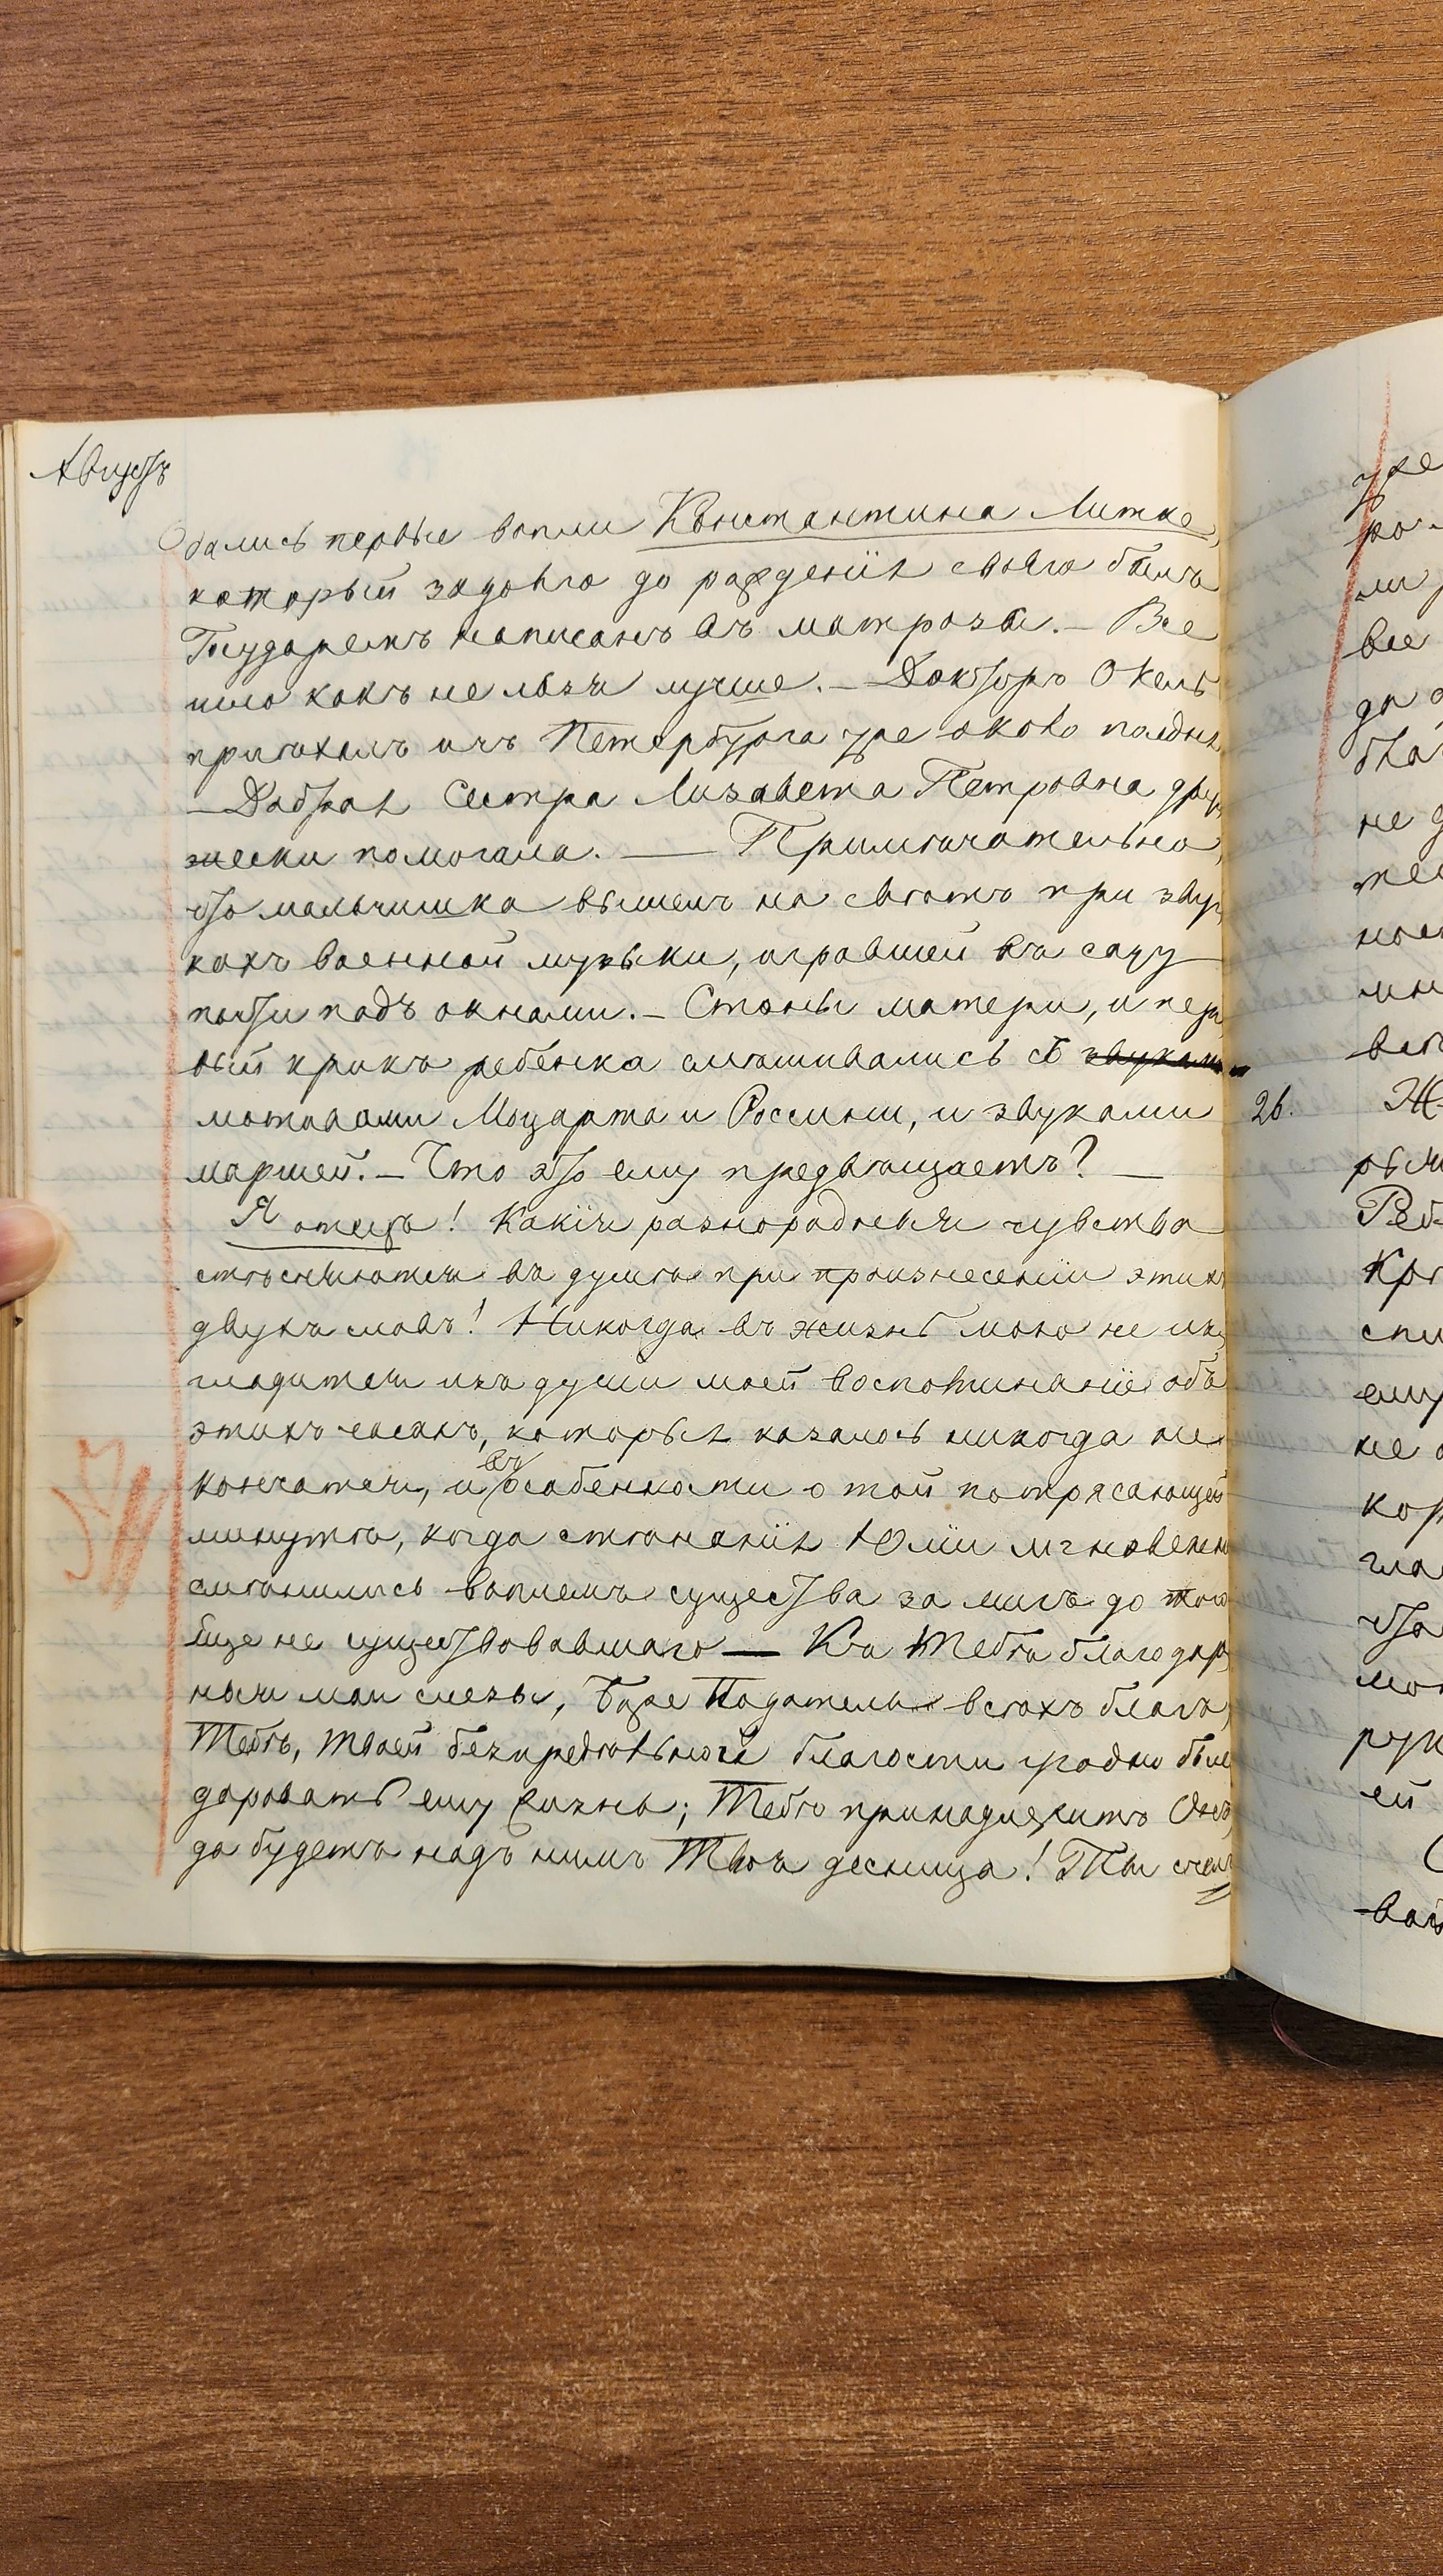 Августъ
дались первые вопли Константина Литке,
который задолго до рожденія своего былъ
Государемъ написанъ въ матрозы. – Все
шло какъ нельзя лучше. – Докторъ Окель
пріѣхалъ изъ Петербурга уже около полдня
– Добрая Сестра Лизавета Петровна дру
жески помогала. — Примѣчательно,
что мальчишка вышелъ на свѣтъ при зву
кахъ военной музыки, игравшей въ саду
почти подъ окнами. – Стоны матери, и пер
вый крикъ ребенка смѣшивались съ звуками
мотивами Моцарта и Россини, и звуками
маршей. – Что это ему предвѣщаетъ? —
Я отецъ! Какія разнородныя чувства
стѣсняются въ душѣ при произнесеніи этихъ
двухъ словъ! Никогда въ жизнь мою не из
гладится изъ души моей воспоминаніе объ
этихъ часахъ, которыя казалось никогда не
кончатся, и въ особенности о той потрясающей
минутѣ, когда стѣнанія Юліи мгновенно
смѣнились воплемъ существа за мигъ до того
еще не существовавшаго — Къ Тебѣ благодар
ныя мои слезы, Боже Податель всѣхъ благъ,
Тебѣ, Твоей безпредѣльной благости угодно было
даровать ему жизнь; Тебѣ принадлежитъ Онъ,
да будетъ надъ нимъ Твоя десница! Ты
уже
ро-
ли
все
да
бла
не
те
ные
мин
вел
26. Ж
рым
Реб
Кре
спи
ему
не
кор
гла
что
мо
рук
ей
вай